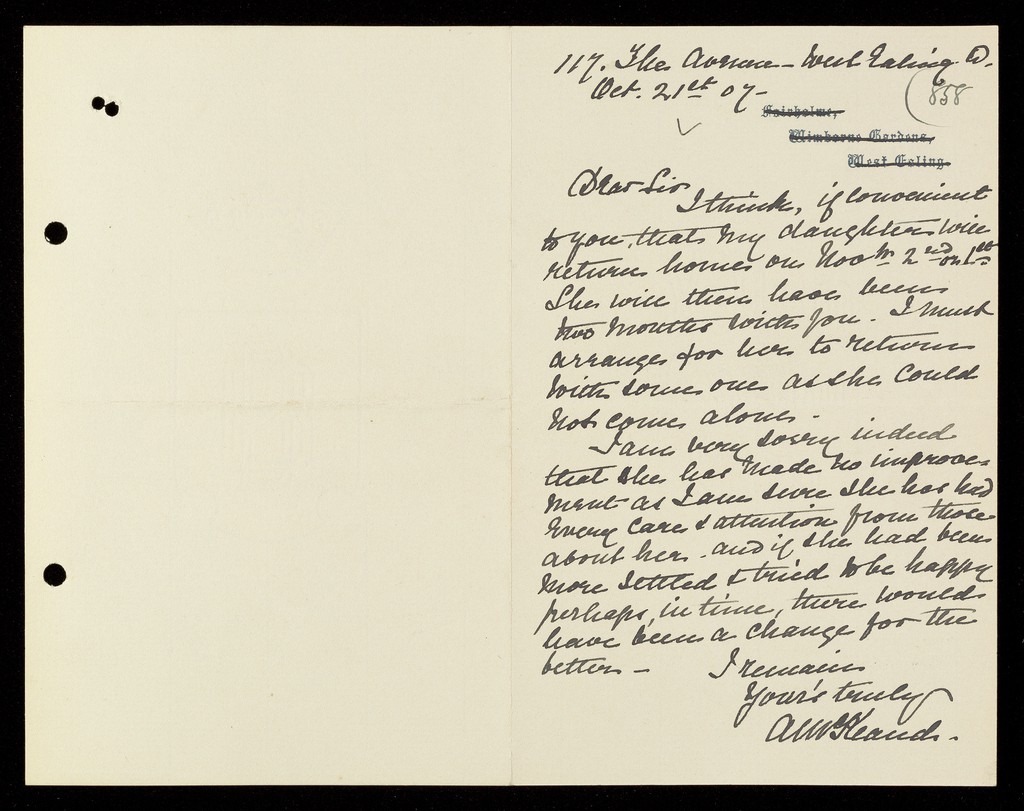 117. The Avenue - West Ealing W.
858
Oct. 21st 07 -
Fairholme,
Wimborne Gardens,
West Ealing.
Dear Sir
I think, if convenient
to you, that my daughter will
return home on Novbr 2nd or 1st
She will then have been
two months with you. I must
arrange for her to return
with some one as she could
not come alone.
I am very sorry indeed
that she has made no improve-
ment as I am sure she has had
every care & attention from those
about her. and if she had been
more settled & tried to be happy
perhaps, in time, there would
have been a change for the
better -
I remain
Your's truly
A McKeand.